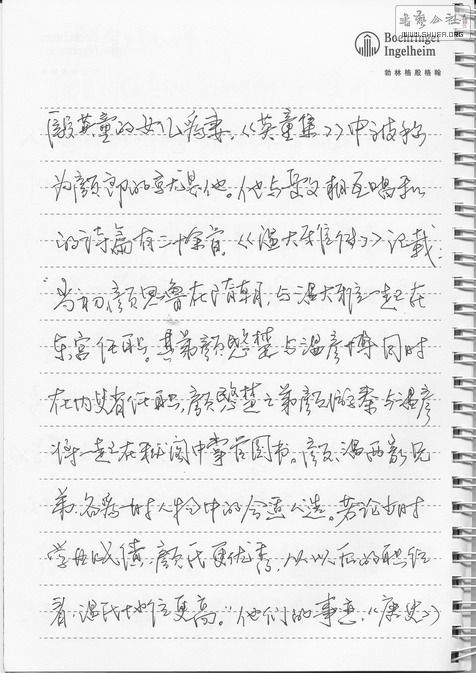 书艺公社
WWW.SHUFA.ORG
Boehringer
Ingelheim
勃林格殷格翰
殷英童的女儿为妻,《英童集》中被称
为颜郎的就是他。他与岳父相互唱和
的诗篇有三十余首。《温大雅传》记载:
“当初颜思鲁在隋朝,与温大雅一起在
东宫任职。其弟颜愍楚与温彦博同时
在内史省任职,颜愍楚之弟颜游秦与温彦
将一起在秘阁中掌管图书。颜、温两家兄
弟,各为一时人物中的人选。若论少时
学业成绩,颜氏更优秀,从以后的职位
看,温氏地位更高。”他们的事迹,《唐史》